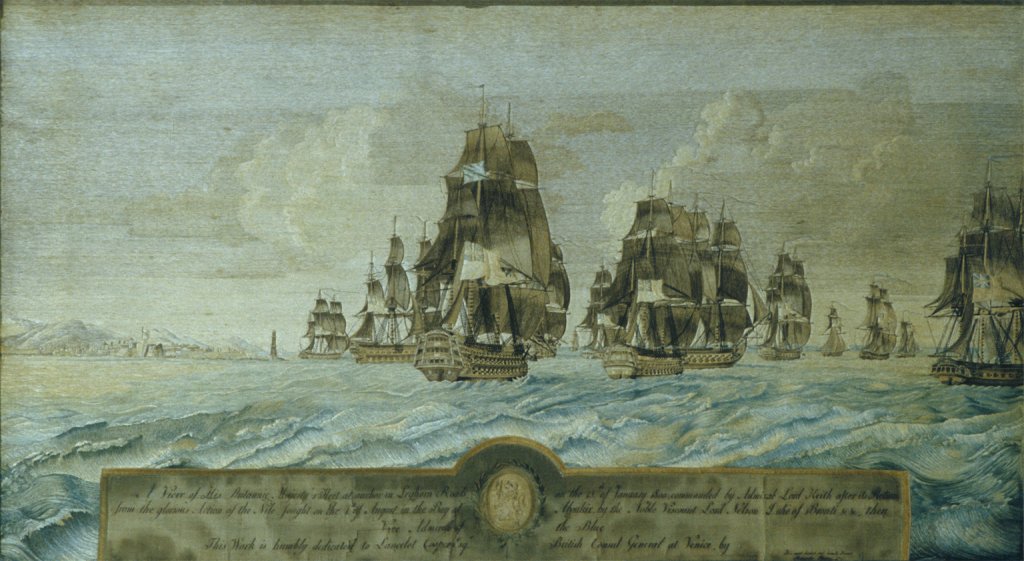 A View of His Britannic Majesty's Fleet at anchor in Leghorn Roads on the 13th of January 1800 commanded by Admiral Lord Keith after its Return
from the glorious Action of the Nile fought on the 1st of August in the Bay of Aboukir by the Noble Viscount Lord Nelson Duke of Bronti &c, then
Vice Admiral of the Blue
This Work is humbly dedicated to Lancelot Esqr British Consul General at Venice, by